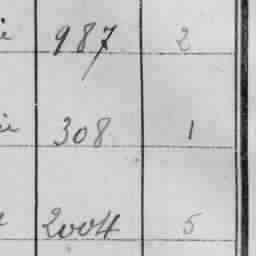 987 2
308 1
2004 5